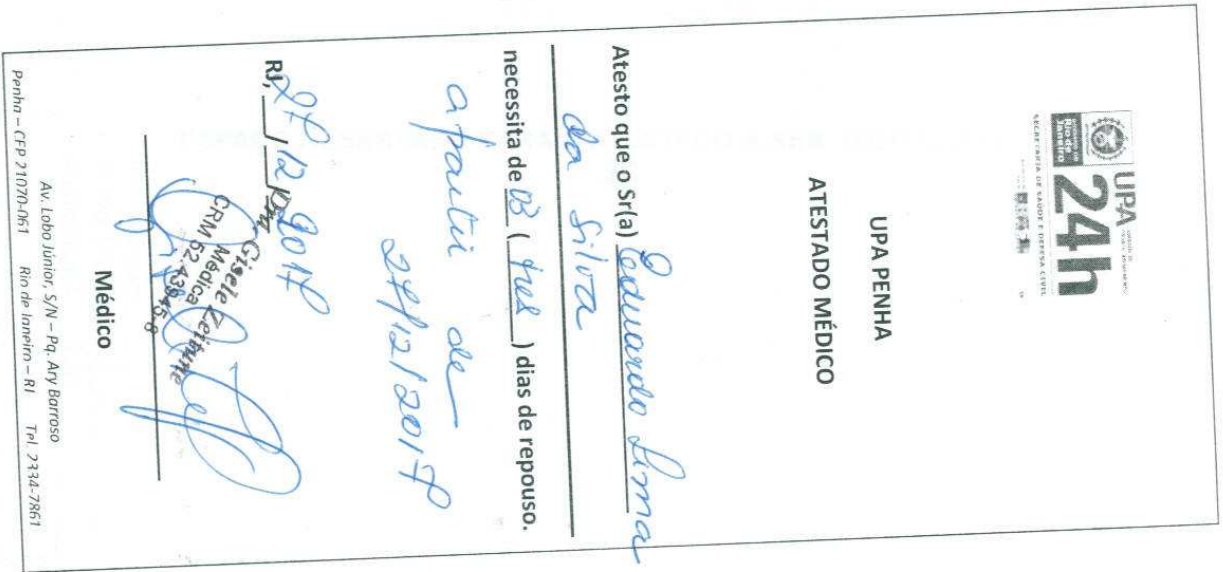 UPA
24h
Rio de Janeiro
SECRETARIA DE SAÚDE E DEFESA CIVIL
UPA PENHA
ATESTADO MÉDICO
Atesto que o Sr(a) Leduardo Lima
da Silva
necessita de 03 ( tres ) dias de repouso.
a partir de
27/12/2017
RJ, 27 / 12 / 2017
Dra. Gisele Zeitune
Médica
CRM 52.43945-8
Médico
Av. Lobo Júnior, S/N – Pq. Ary Barroso
Penha – CEP 21070-061 Rio de Janeiro – RJ Tel 2334-7861